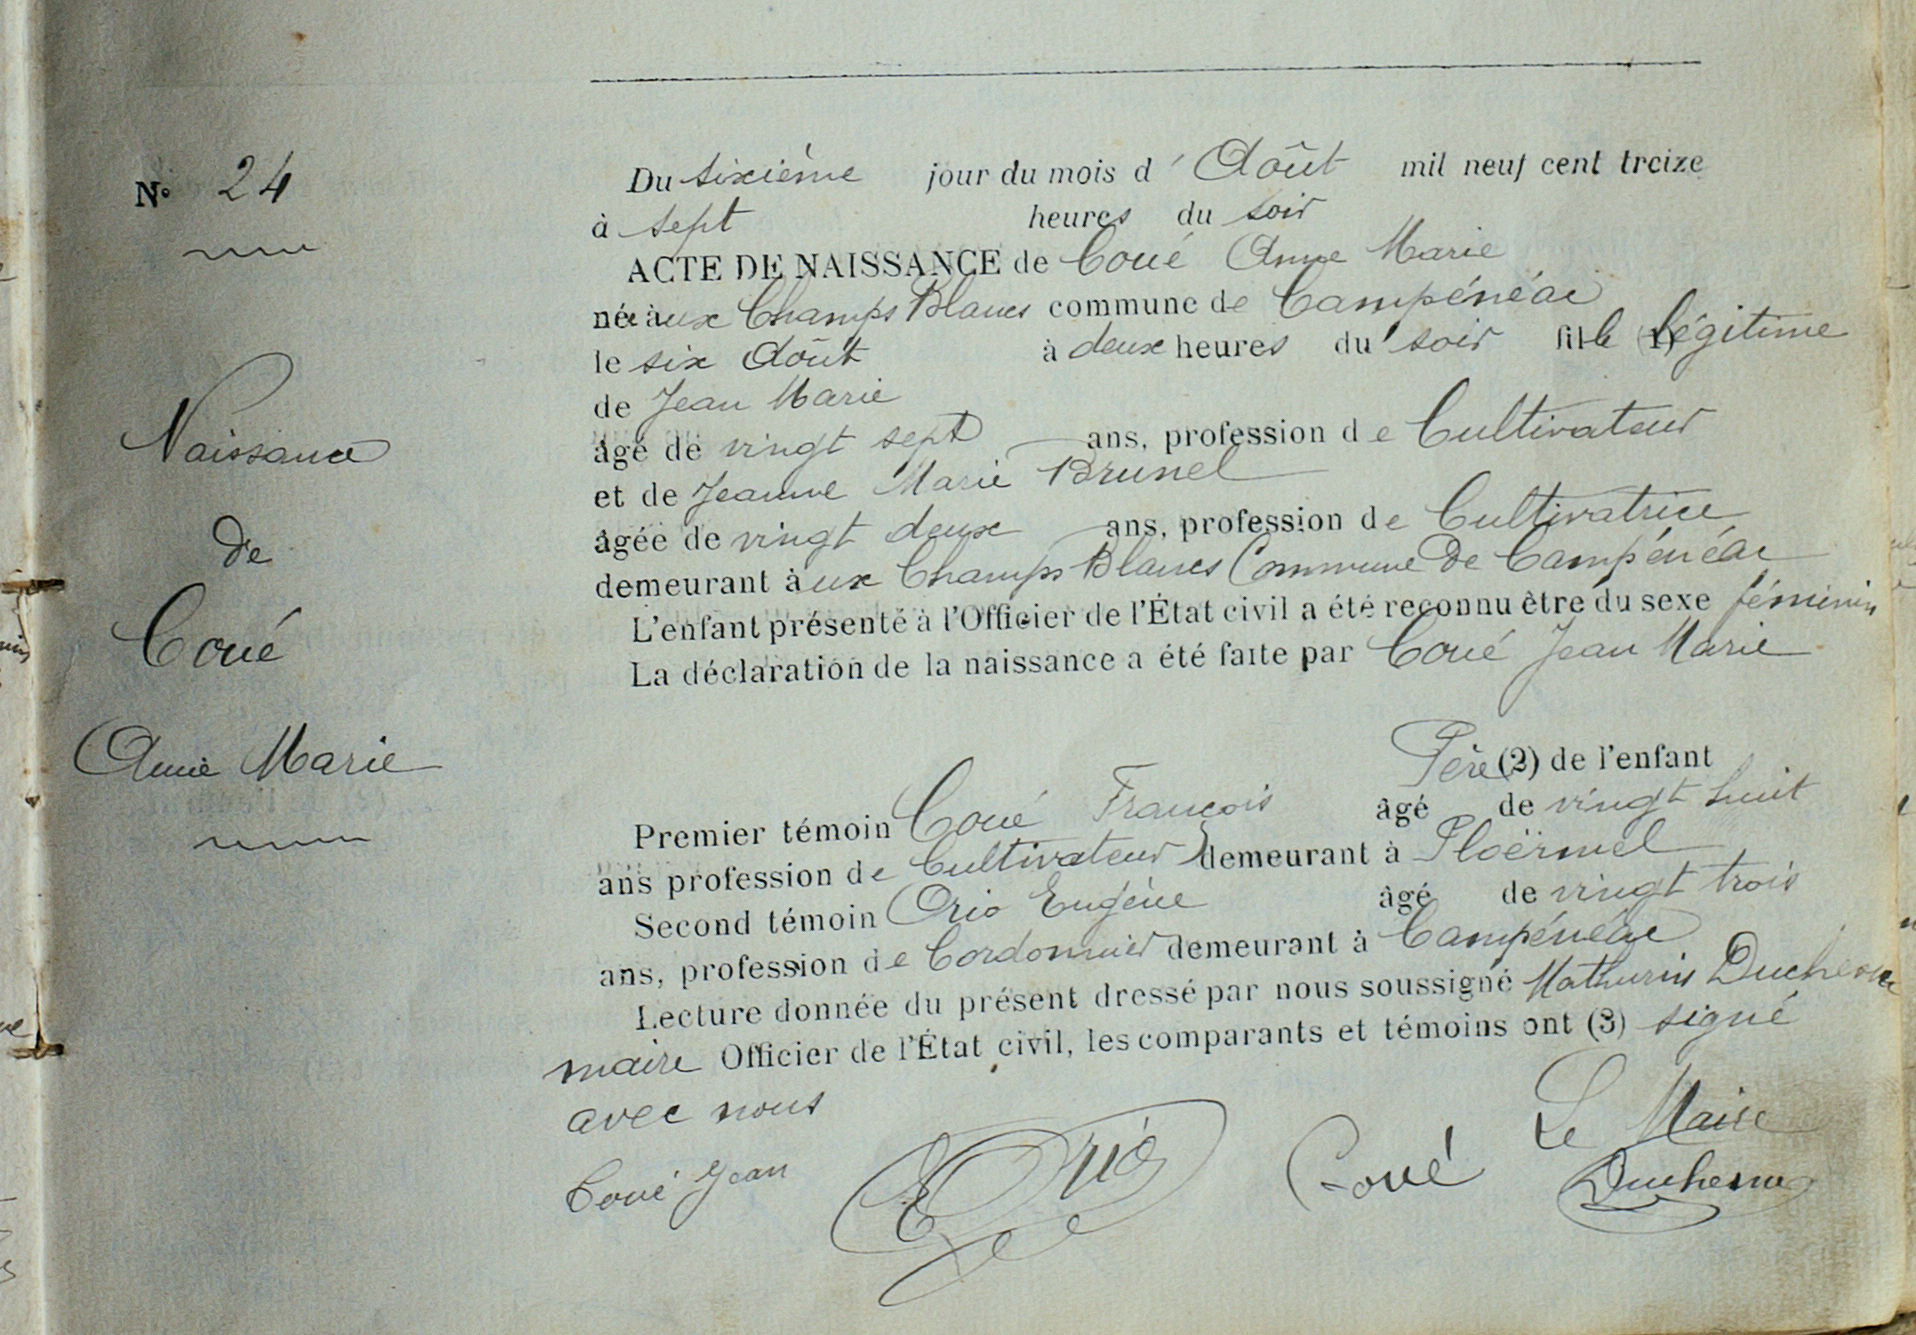 N° 24
Naissance
de
Coué
Anne Marie
Du sixième jour du mois d' Août mil neuf cent treize
à sept heures du soir
ACTE DE NAISSANCE de Coué Anne Marie
née aux Champs Blancs commune de Campénéac
le six Août à deux heures du soir fille (1) légitime
de Jean Marie
âgé de vingt sept ans, profession de Cultivateur
et de Jeanne Marie Brunel
âgée de vingt deux ans, profession de Cultivatrice
demeurant aux Champs Blancs Commune De Campénéac
L'enfant présenté à l'Officier de l'État civil a été reconnu être du sexe féminin
La déclaration de la naissance a été faite par Coué Jean Marie
Père (2) de l'enfant
Premier témoin Coué François âgé de vingt huit
ans profession de Cultivateur demeurant à Ploërmel
Second témoin Orio Eugène âgé de vingt trois
ans, profession de Cordonnier demeurant à Campénéac
Lecture donnée du présent dressé par nous soussigné Mathurin Duchesne
maire Officier de l'État civil, les comparants et témoins ont (3) signé
avec nous
Le Maire
Coué Jean E Orio Coué Duchesne